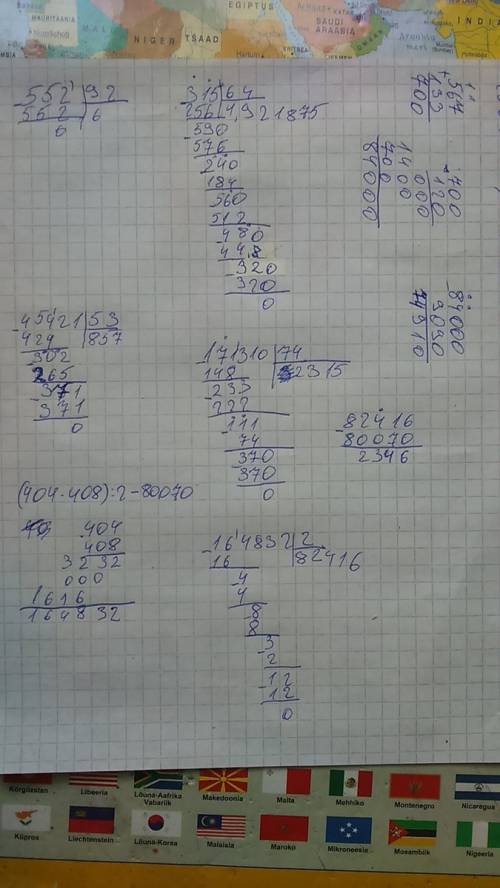 EGIPTUS
INDIA
MAURITAANIA
NIGER
TSAAD
SAUDI
ARAABIA
552 | 92
552 | 6
0
315 | 64
256 | 4,921875
590
576
240
184
560
512
480
448
320
320
0
567
133
700
700
120
000
1400
700
84000
84000
3090
45421 | 53
424 | 857
302
265
371
371
0
171310 | 74
148 | 2315
233
222
111
74
370
370
0
82416
80070
2346
(404·408):2-80070
404
408
3232
000
1616
164832
164832 | 2
16 | 82416
4
4
8
8
3
2
12
12
0
Kõrgõzstan
Libeeria
Lõuna-Aafrika
Vabariik
Makedoonia
Malta
Mehhiko
Montenegro
Nicaragua
Küpros
Liechtenstein
Lõuna-Korea
Malaisia
Maroko
Mikroneesia
Mosambiik
Nigeeria